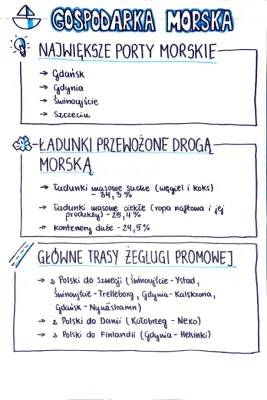 GOSPODARKA MORSKA
NAJWIĘKSZE PORTY MORSKIE
→ Gdańsk
→ Gdynia
→ Świnoujście
→ Szczecin
ŁADUNKI PRZEWOŻONE DROGĄ
MORSKĄ
→ Ładunki masowe suche (węgiel i koks)
- 34,3 %
→ Ładunki masowe ciekłe (ropa naftowa i jej
produkty) - 25,4 %
→ kontenery duże - 24,5 %
GŁÓWNE TRASY ŻEGLUGI PROMOWEJ
→ z Polski do Szwecji (Świnoujście - Ystad,
Świnoujście - Trelleborg, Gdynia - Kalskrona,
Gdańsk - Nynäshamn)
→ z Polski do Danii (Kołobrzeg - Nexo)
→ z Polski do Finlandii (Gdynia - Helsinki)